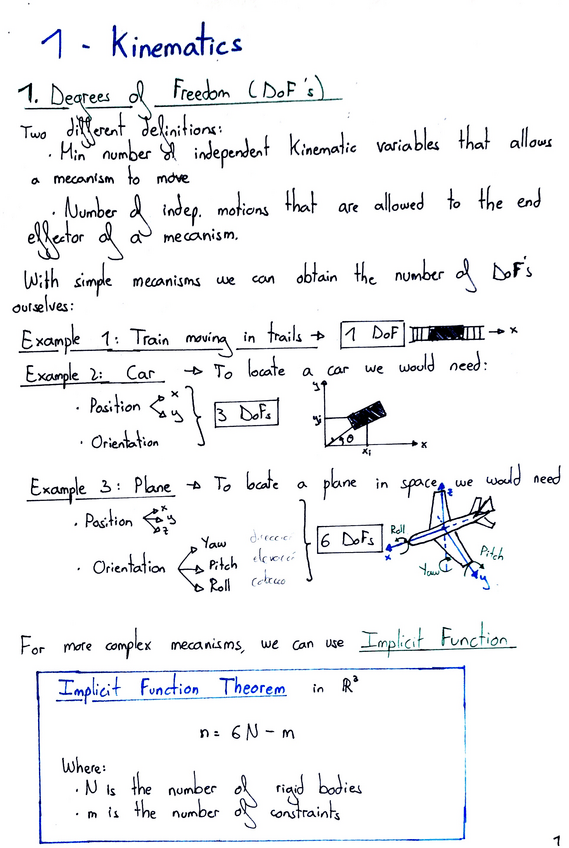 1 - Kinematics
1. Degrees of Freedom (DoF's)
Two different definitions:
· Min number of independent Kinematic variables that allows
a mecanism to move
· Number of indep. motions that are allowed to the end
effector of a mecanism.
With simple mecanisms we can obtain the number of DoF's
ourselves:
Example 1: Train moving in trails → 1 DoF → x
Example 2: Car → To locate a car we would need:
· Position x y
· Orientation
3 DoFs
y
yi
θ
xi
x
Example 3: Plane → To locate a plane in space, we would need
· Position x y z
· Orientation
Yaw
Pitch
Roll
6 DoFs
z
Roll
x
Yaw
Pitch
y
For more complex mecanisms, we can use Implicit Function
Implicit Function Theorem in ℝ³
n = 6N - m
Where:
· N is the number of rigid bodies
· m is the number of constraints
1